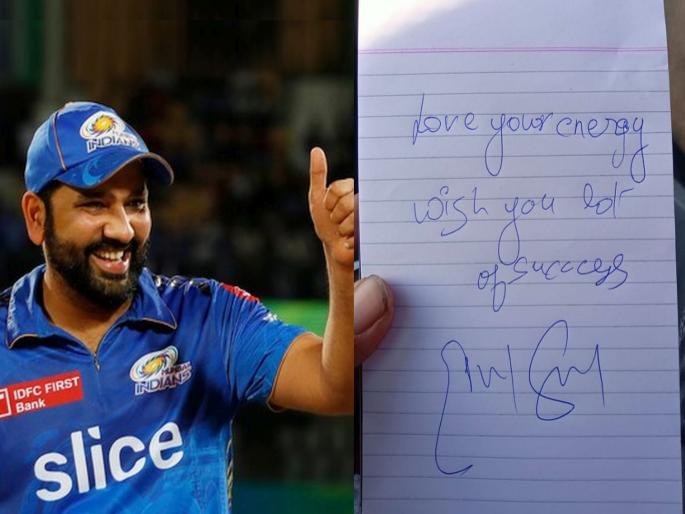 INDIANS
MUMBAI
INDIANS
IDFC FIRST
Bank
slice
Love your energy
wish you lot
of success